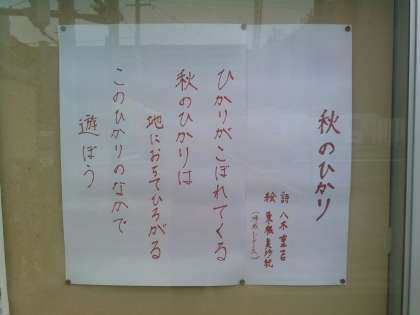 秋のひかり
詩 八木重吉
絵
ひかりがこぼれてくる
秋のひかりは
地におちてひろがる
このひかりのなかで
遊ぼう